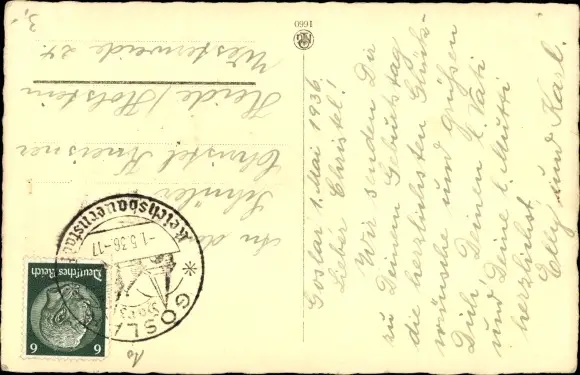 3,-
1660
Goslar 1. Mai 1936
Lieber Christel!
Wir senden Dir
zu Deinem Geburtstag
die herzlichsten Glück-
wünsche und grüßen
Dich, Deinen l. Vati
und Deine l. Mutti
herzlichst
Elly und Karl.
An den
Schüler
Christel Kneisner
Heide / Holstein
Westerweide 24.
GOSLAR
-1.5.36-17
Reichsbauernstadt
Deutsches Reich
6 6